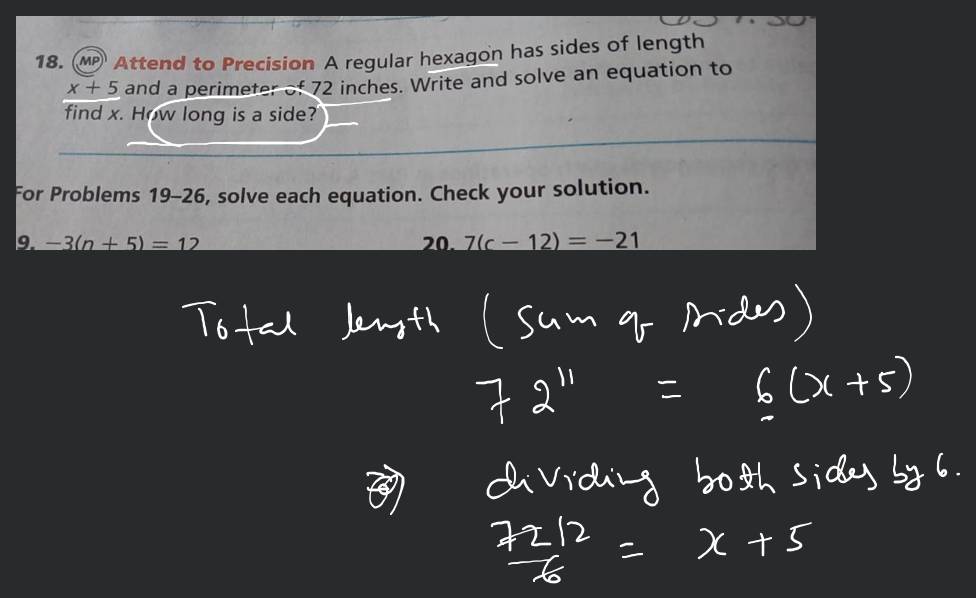 18. MP Attend to Precision A regular hexagon has sides of length
x + 5 and a perimeter of 72 inches. Write and solve an equation to
find x. How long is a side?
For Problems 19–26, solve each equation. Check your solution.
9. −3(n + 5) = 12 20. 7(c − 12) = −21
Total length (sum of sides)
72" = 6(x+5)
dividing both sides by 6.
72 12 = x + 5
6